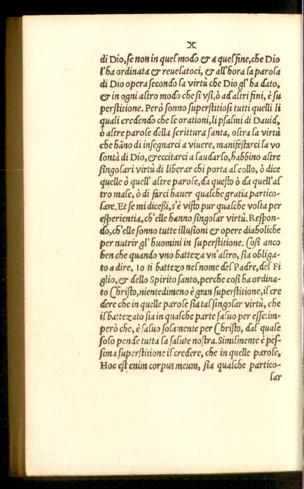 X
di Dio, se non in quel modo & a quel fine, che Dio
l'ha ordinata & reuelatoci, & all'hora la parola
di Dio opera secondo la virtù che Dio gl'ha dato,
& in ogni altro modo che s'vsi, ò ad altri fini, è su
perstitione. Però sonno superstitiosi tutti quelli li
quali credendo che le orationi, li psalmi di Dauid,
ò altre parole della scrittura santa, oltra la virtù
che hāno di insegnarci a viuere, manifestarci la vo
lontà di Dio, & eccitarci a laudarlo, habbino altre
singolari virtù di liberar chi porta al collo, ò dice
quelle ò quell'altre parole, da questo ò da quell'al
tro male, ò di farci hauer qualche gratia partico-
lare. Et se mi dicessi, s'è visto pur qualche volta per
esperientia, ch'elle hanno singolar virtù. Respon-
do, ch'elle sonno tutte illusioni & opere diaboliche
per nutrir gl'huomini in superstitione. Cosi anco
hen che quando vno batteza vn'altro, sia obliga-
to a dire, Io ti battezo nel nome del Padre, del Fi
glio, & dello Spirito santo, perche cosi ha ordina-
to Christo, nientedimeno è gran superstitione, il cre
dere che in quelle parole sia tal singolar virtù, che
il battezato sia in qualche parte saluo per esse: im-
però che, è saluo solamente per Christo, dal quale
solo pende tutta la salute nostra. Similmente è pes-
sima superstitione il credere, che in quelle parole,
Hoc est enim corpus meum, sia qualche partico-
lar